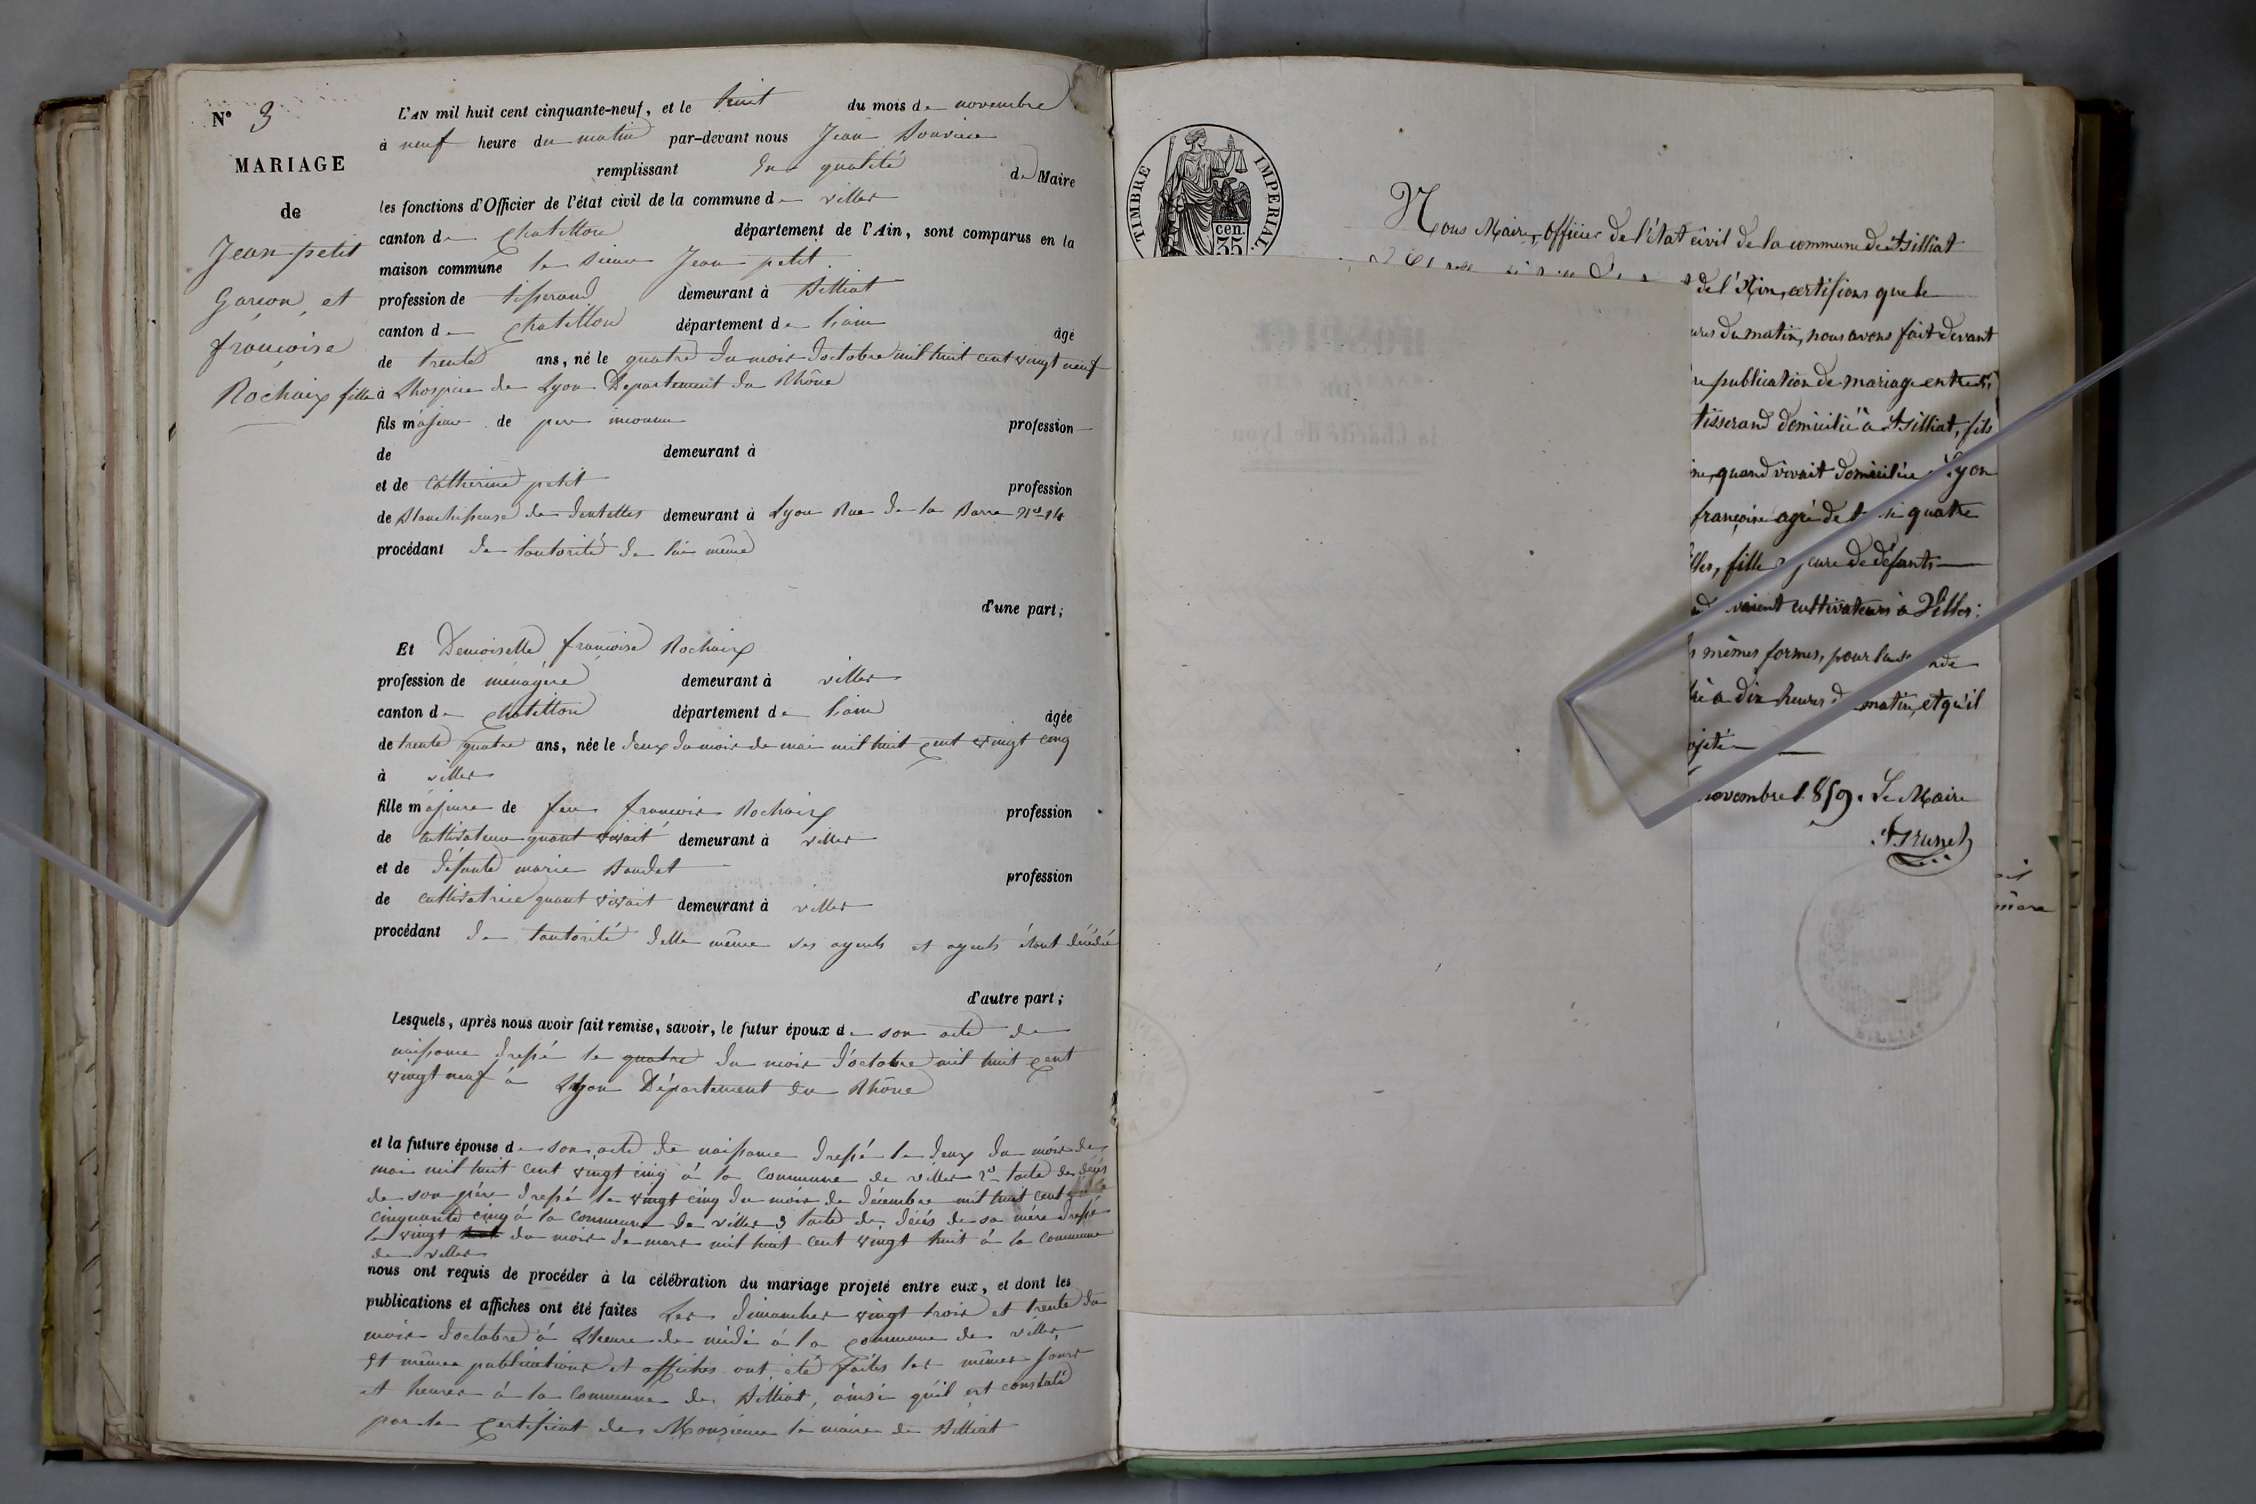 N° 3
MARIAGE
de
Jean petit
Garcon, et
francoise
Rochaix fille
L'AN mil huit cent cinquante-neuf, et le huit du mois de novembre
à neuf heure du matin par-devant nous Jean
remplissant En qualité de Maire
les fonctions d'Officier de l'état civil de la commune de villes
canton de Chatillon département de l'Ain, sont comparus en la
maison commune le sieur Jean petit
profession de tisserand demeurant à Billiat
canton de Chatillon département de l'ain âgé
de trente ans, né le quatre du mois d'octobre mil huit cent vingt neuf
à Lhospice de Lyon Departement du Rhône
fils majeur de père inconnu profession
de demeurant à
et de Catherine petit profession
de Blanchisseuse de dentelles demeurant à Lyon Rue de la Barre N° 14
procédant de lautorité de lui même
d'une part;
Et Demoiselle francoise Rochaix
profession de ménagère demeurant à villes
canton de Chatillon département de l'ain âgée
de trente quatre ans, née le deux du mois de mai mil huit cent vingt cinq
à villes
fille majeure de feu francois Rochaix profession
de cultivateur quant vivait demeurant à villes
et de défunte marie Baudet profession
de cultivatrice quant vivait demeurant à villes
procédant de lautorité delle même ses ayeuls et ayeuls étant décédés
d'autre part;
Lesquels, après nous avoir fait remise, savoir, le futur époux de son acte de
naissance dressé le quatre du mois d'octobre mil huit cent
vingt neuf à Lyon Département du Rhône
et la future épouse de son acte de naissance dressé le deux du mois de
mai mil huit cent vingt cinq à la commune de villes 2° lacte de décès
de son père dressé le vingt cinq du mois de décembre mil huit cent
cinquante cinq à la commune de villes 3 lacte de décès de sa mère dressé
le vingt du mois de mars mil huit cent vingt huit à la commune
de villes
nous ont requis de procéder à la célébration du mariage projeté entre eux, et dont les
publications et affiches ont été faites Les dimanches vingt trois et trente du
mois d'octobre à Lheure de midi à la commune de villes
Et mêmes publications et affiches ont été faites les mêmes jours
et heures à la commune de Billiat, ainsi qu'il est constaté
par le Certificat de Monsieur le maire de Billiat
TIMBRE IMPERIAL
35 cen.
Nous Maire, Officier de l'état civil de la commune de Billiat
de l'Ain, certifions que le
ures du matin, nous avons fait devant
publication de mariage entre
tisserand domicilié à Billiat, fils
quand vivait domiciliée à Lyon
françoise agée de quatre
fille de défunts
vivaient cultivateurs à Villes;
mêmes formes, pour la
à dix heures du matin, et qu'il
ojeté
novembre 1859. Le Maire